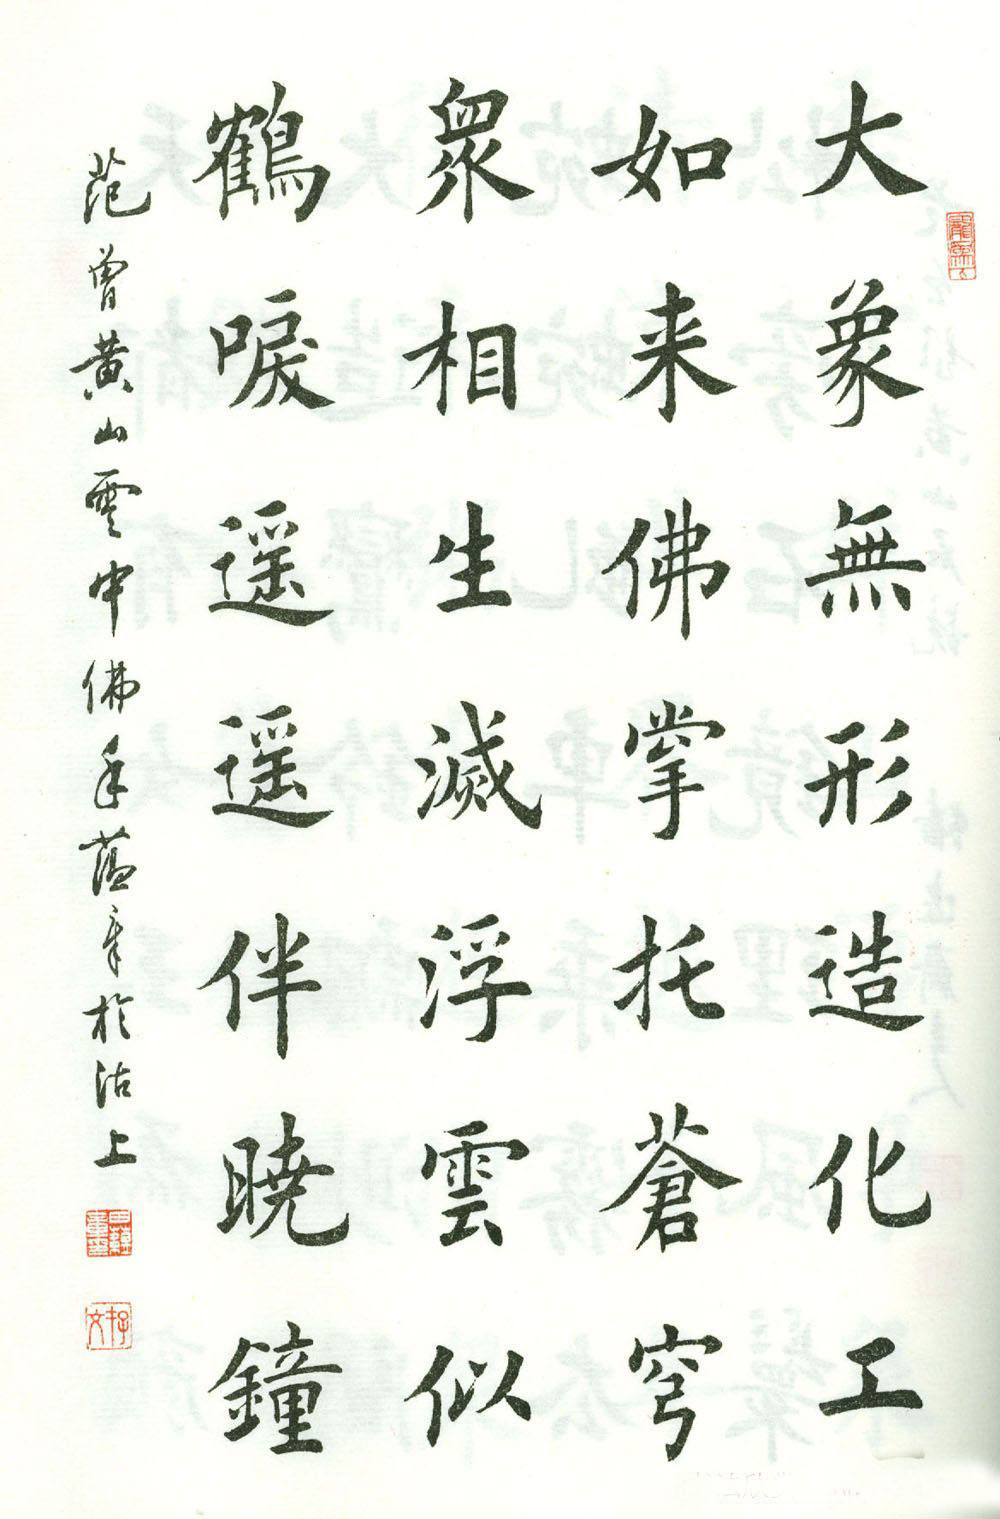 大象無形造化工
如来佛掌托蒼穹
眾相生滅浮雲似
鶴唳遥遥伴曉鐘
范曾黄山雲中佛手蕴章於沽上